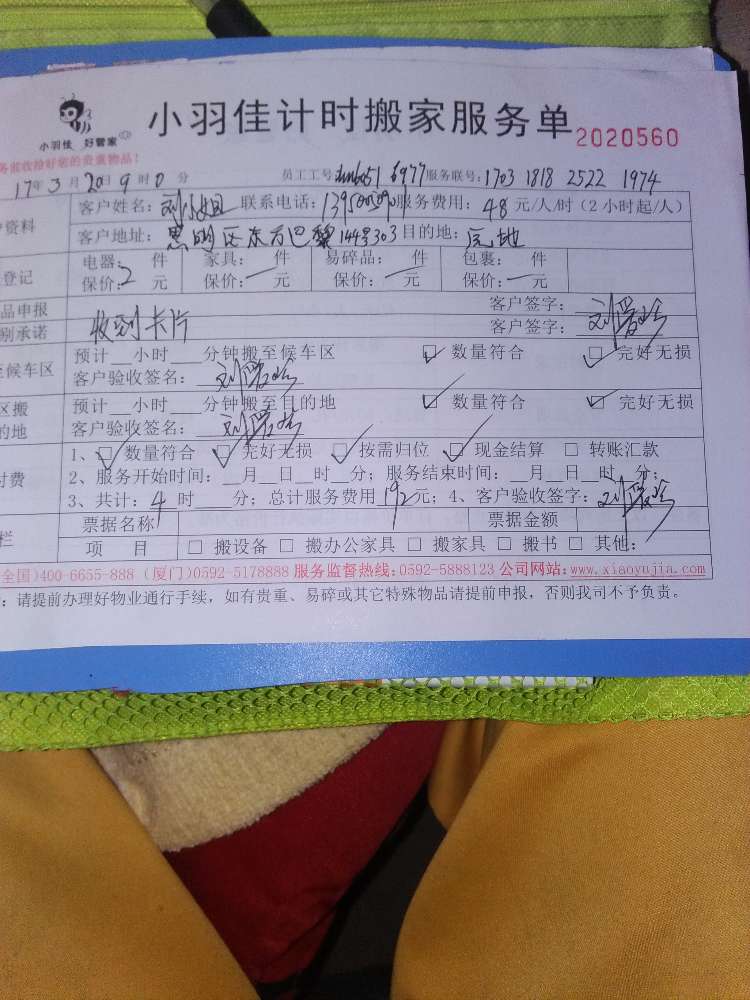 小羽佳计时搬家服务单 2020560
小羽佳 好管家
务监收拾好您的贵重物品!
17年3月20日9时0分 员工工号: 6977 服务联号:1703 1818 2522 1974
户资料 客户姓名:刘小姐 联系电话: 服务费用:48元/人/时(2小时起/人)
客户地址:思明区东方巴黎144号303 目的地:
登记 电器: 件 家具: 件 易碎品: 件 包裹: 件
保价:2元 保价:一元 保价:一元 保价:一元
品申报 客户签字:
别承诺 收到卡片 客户签字:
至候车区 预计__小时__分钟搬至候车区 数量符合 完好无损
客户验收签名:
区搬 预计__小时__分钟搬至目的地 数量符合 完好无损
的地 客户验收签名:
1、数量符合 完好无损 按需归位 现金结算 转账汇款
付费 2、服务开始时间:__月__日__时__分; 服务结束时间:__月__日__时__分;
3、共计:4时__分; 总计服务费用192元; 4、客户验收签字:
栏 票据名称 票据金额
项 目 □ 搬设备 □ 搬办公家具 □ 搬家具 □ 搬书 □ 其他:
全国)400-6655-888 (厦门)0592-5178888 服务监督热线:0592-5888123 公司网站:www.xiaoyujia.com
:请提前办理好物业通行手续,如有贵重、易碎或其它特殊物品请提前申报,否则我司不予负责。